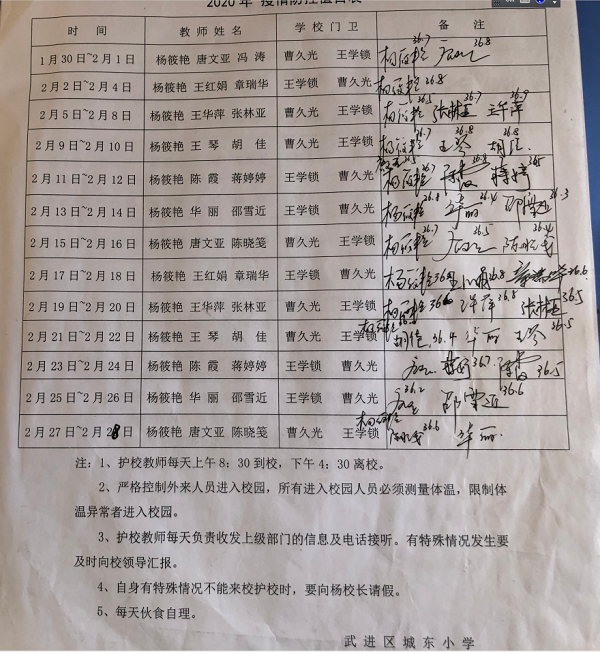 2020 年 疫情防控值日表
时 间 教 师 姓 名 学 校 门 卫 备 注
1 月 30 日~2 月 1 日 杨筱艳 唐文亚 冯 涛 曹久光 王学锁 杨筱艳 36.7 36.8
2 月 2 日~2 月 4 日 杨筱艳 王红娟 章瑞华 王学锁 曹久光 杨筱艳 36.8
2 月 5 日~2 月 8 日 杨筱艳 王华萍 张林亚 曹久光 王学锁 杨筱艳 36.5 张林亚 36.7 王华萍 36.9
2 月 9 日~2 月 10 日 杨筱艳 王 琴 胡 佳 王学锁 曹久光 杨筱艳 36.7 王琴 36.8 胡佳 36.8
2 月 11 日~2 月 12 日 杨筱艳 陈 霞 蒋婷婷 曹久光 王学锁 杨筱艳 36.7 陈霞 36.8 蒋婷
2 月 13 日~2 月 14 日 杨筱艳 华 丽 邵雪近 王学锁 曹久光 杨筱艳 36.8 华丽 36.4 邵雪近 36.3
2 月 15 日~2 月 16 日 杨筱艳 唐文亚 陈晓笺 曹久光 王学锁 杨筱艳 36.7 36.5 陈晓笺 36.4
2 月 17 日~2 月 18 日 杨筱艳 王红娟 章瑞华 王学锁 曹久光 杨筱艳 36.8 章瑞华 36.6
2 月 19 日~2 月 20 日 杨筱艳 王华萍 张林亚 曹久光 王学锁 杨筱艳 36.6 36.8 张林亚 36.5
2 月 21 日~2 月 22 日 杨筱艳 王 琴 胡 佳 王学锁 曹久光 杨筱艳 胡佳 36.4 华丽 王琴 36.5
2 月 23 日~2 月 24 日 杨筱艳 陈 霞 蒋婷婷 曹久光 王学锁 36.7 陈霞 36.5
2 月 25 日~2 月 26 日 杨筱艳 华 丽 邵雪近 王学锁 曹久光 36.2 邵雪近 36.6
2 月 27 日~2 月 28 日 杨筱艳 唐文亚 陈晓笺 曹久光 王学锁 杨筱艳 36.6 华丽
注：1、护校教师每天上午 8：30 到校，下午 4：30 离校。
2、严格控制外来人员进入校园，所有进入校园人员必须测量体温，限制体
温异常者进入校园。
3、护校教师每天负责收发上级部门的信息及电话接听。有特殊情况发生要
及时向校领导汇报。
4、自身有特殊情况不能来校护校时，要向杨校长请假。
5、每天伙食自理。
武进区城东小学